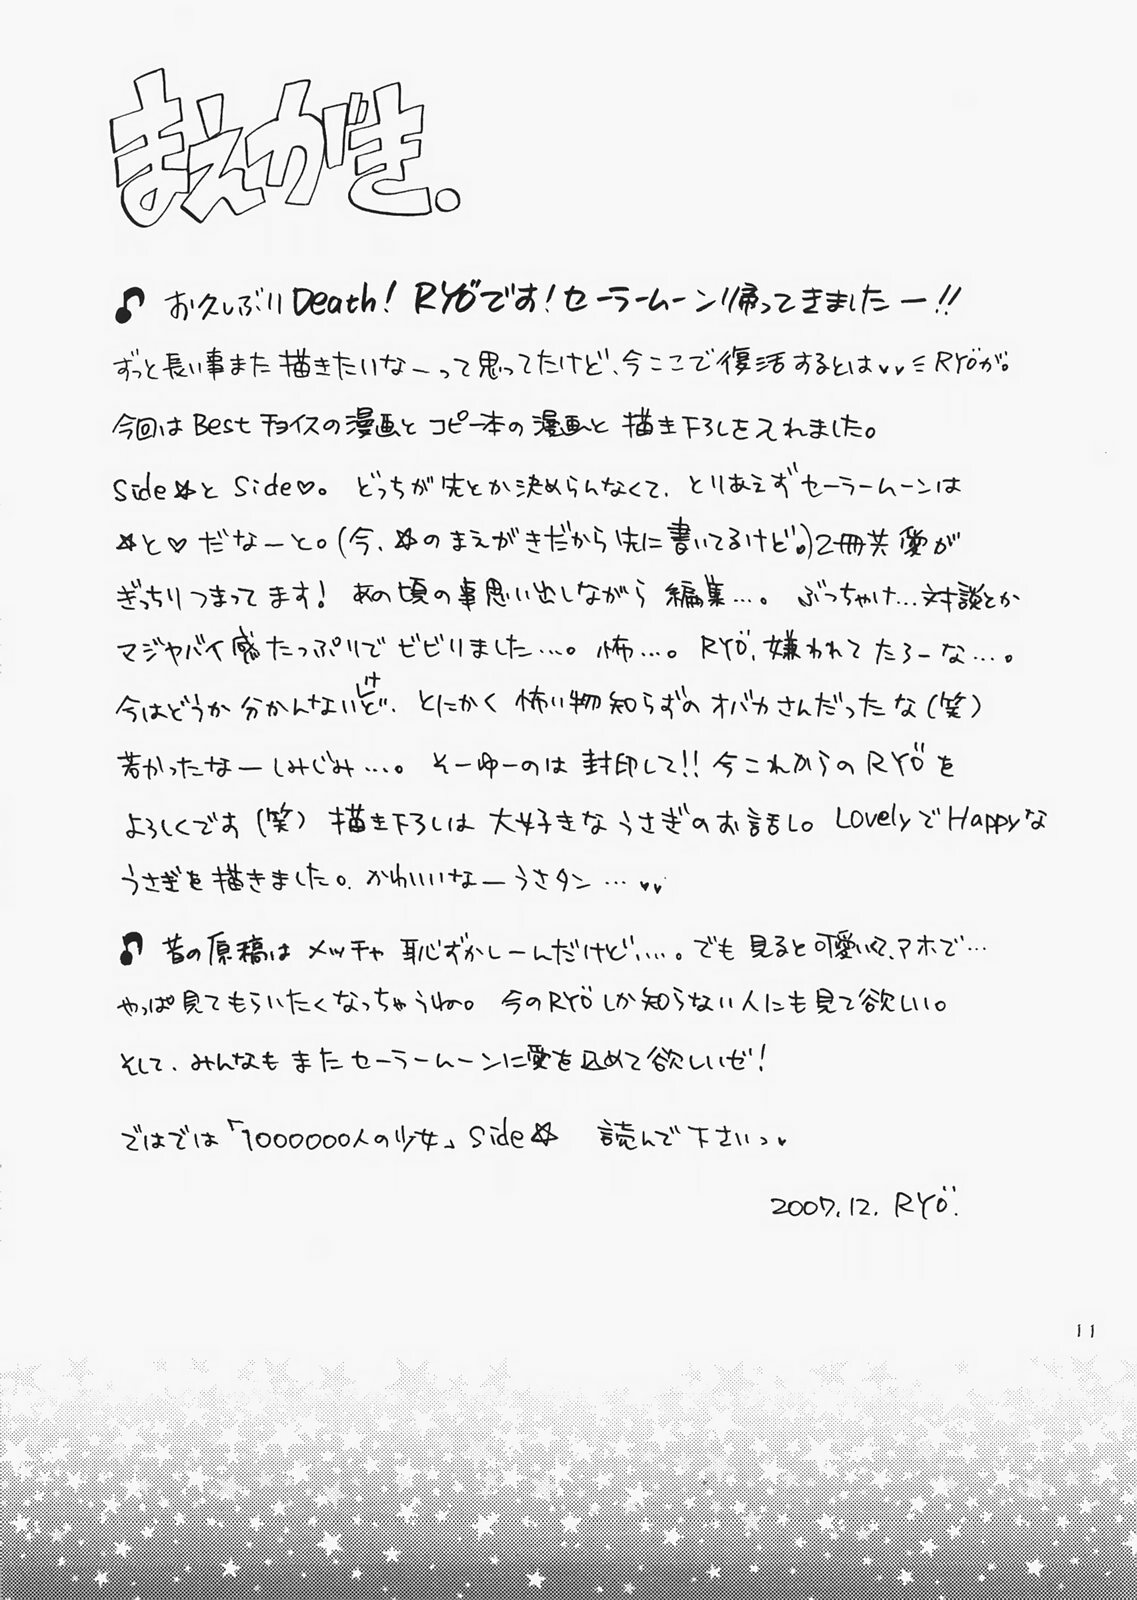 まえがき.
♪ お久しぶりDeath! RYÖです!セーラームーン帰ってきましたー!!
ずっと長い事また描きたいなーって思ってたけど、今ここで復活するとは♥♥ミRYÖが。
今回はBestチョイスの漫画とコピー本の漫画と描き下ろしをえれました。
Side☆とSide♡。どっちが先とか決めらんなくて、とりあえずセーラームーンは
☆と♡だなーと。(今、☆のまえがきだから先に書いてるけど。)2冊共愛が
ぎっちりつまってます!あの頃の事思い出しながら編集…。ぶっちゃけ…対談とか
マジヤバイ感たっぷりでビビりました…。怖…。RYÖ、嫌われてたろーな…。
今はどうか分かんないけど、とにかく怖い物知らずのオバカさんだったな(笑)
若かったなーしみじみ…。そーゆーのは封印して!!今これからのRYÖを
よろしくです(笑)描き下ろしは大好きなうさぎのお話し。LovelyでHappyな
うさぎを描きました。かわいいなーうさタン…♥♥
♪ 昔の原稿はメッチャ恥ずかしーんだけど…。でも見ると可愛いくて、アホで…
やっぱ見てもらいたくなっちゃうね。今のRYÖしか知らない人にも見て欲しい。
そして、みんなもまたセーラームーンに愛を込めて欲しいゼ!
ではでは「1000000人の少女」Side☆ 読んで下さいっ♥
2007.12. RYÖ.
11